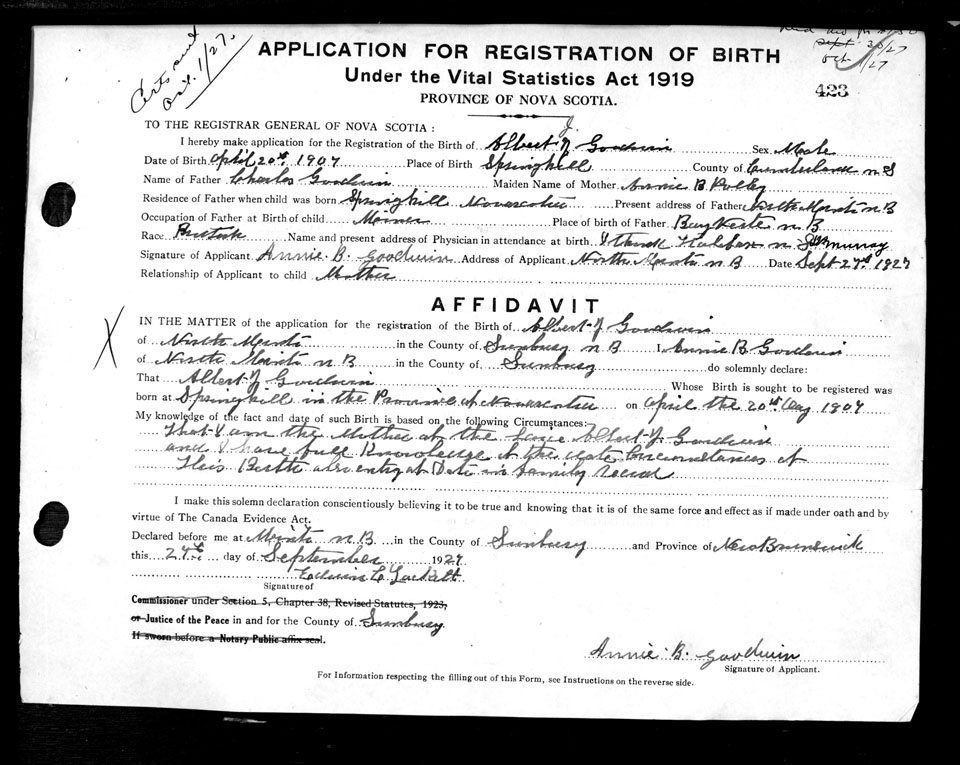 Certs sent
Oct. 1/27.
Sept 30/27
Oct 1/27
APPLICATION FOR REGISTRATION OF BIRTH
Under the Vital Statistics Act 1919
423
PROVINCE OF NOVA SCOTIA.
TO THE REGISTRAR GENERAL OF NOVA SCOTIA:
J.
I hereby make application for the Registration of the Birth of Albert J Goodwin Sex Male
Date of Birth April 20th 1907 Place of Birth Springhill County of Cumberland N S
Name of Father Charles Goodwin Maiden Name of Mother Annie B Polley
Residence of Father when child was born Springhill Novascotia Present address of Father North Minto N B
Occupation of Father at Birth of child Miner Place of birth of Father N B
Race British Name and present address of Physician in attendance at birth I think Halifax N S Dr Murray
Signature of Applicant Annie B. Goodwin Address of Applicant North Minto N B Date Sept 27th 1927
Relationship of Applicant to child Mother
AFFIDAVIT
IN THE MATTER of the application for the registration of the Birth of Albert J Goodwin
X
of North Minto in the County of Sunbury N B I, Annie B Goodwin
of North Minto N B in the County of Sunbury do solemnly declare:
That Albert J Goodwin Whose Birth is sought to be registered was
born at Springhill in the Province of Novascotia on April the 20th Day 1907
My knowledge of the fact and date of such Birth is based on the following Circumstances:
That I am the Mother of the Albert J Goodwin
and I have full Knowledge of the date Circumstances of
Birth also entry of Date in family
I make this solemn declaration conscientiously believing it to be true and knowing that it is of the same force and effect as if made under oath and by
virtue of The Canada Evidence Act.
Declared before me at Minto N B in the County of Sunbury and Province of New Brunswick
this 27th day of September 1927
Signature of
Commissioner under Section 5, Chapter 38, Revised Statutes, 1923,
or Justice of the Peace in and for the County of Sunbury
If sworn before a Notary Public affix seal.
Annie B. Goodwin
Signature of Applicant.
For Information respecting the filling out of this Form, see Instructions on the reverse side.